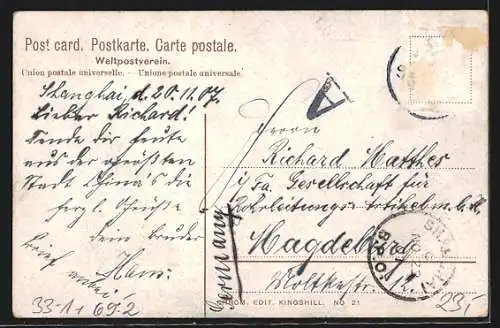 Post card. Postkarte. Carte postale.
Weltpostverein.
Union postale universelle. - Unione postale universale
Shanghai, d. 20.11.07.
Lieber Richard!
Sende dir heute
aus der größten
Stadt China's die
herzl. Grüße
dein Bruder
Hans.
Brief anbei
Herrn
Richard Matthes
i/ Fa. Gesellschaft für
Rohrleitungs-Artikel m.b.H.
Magdeburg
Moltkestr. 12
Germany
A
B.P.O.
EDIT. KINGSHILL. No 21
33-1+69-2
23,-